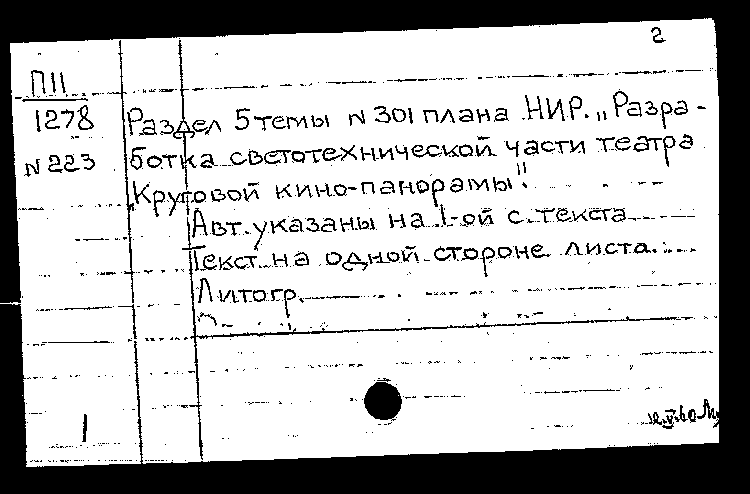 2
П11
1278
N 223
Раздел 5 темы N 301 плана НИР. „Разра-
ботка светотехнической части театра
Круговой кино-панорамы".
Авт. указаны на 1-ой с. текста
Текст на одной стороне листа.
Литогр.
1